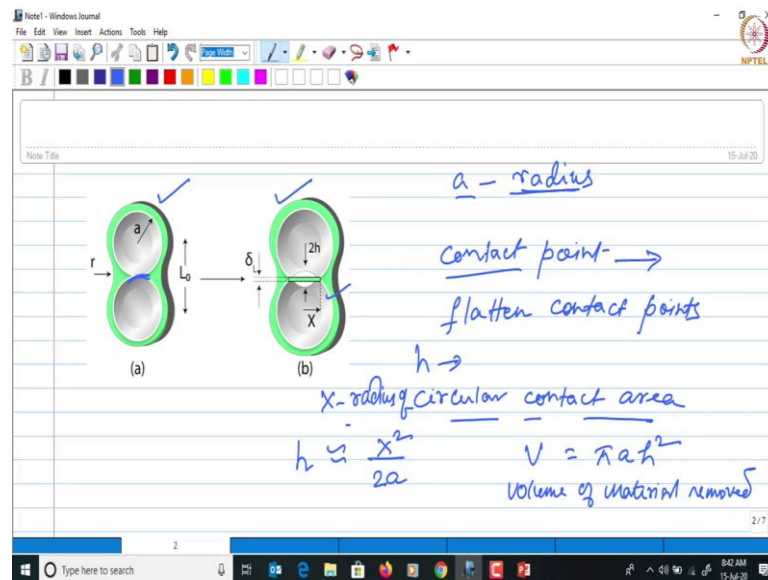 Note1 - Windows Journal
File Edit View Insert Actions Tools Help
Page Width
NPTEL
B I
Note Title
15-Jul-20
a - radius
contact point →
flatten contact points
h →
x - radius of circular contact area
h ≃ x²/2a
V = πah²
volume of material removed
a
r
L₀
(a)
δ
2h
X
(b)
2/7
2
Type here to search
8:42 AM
15-Jul-20